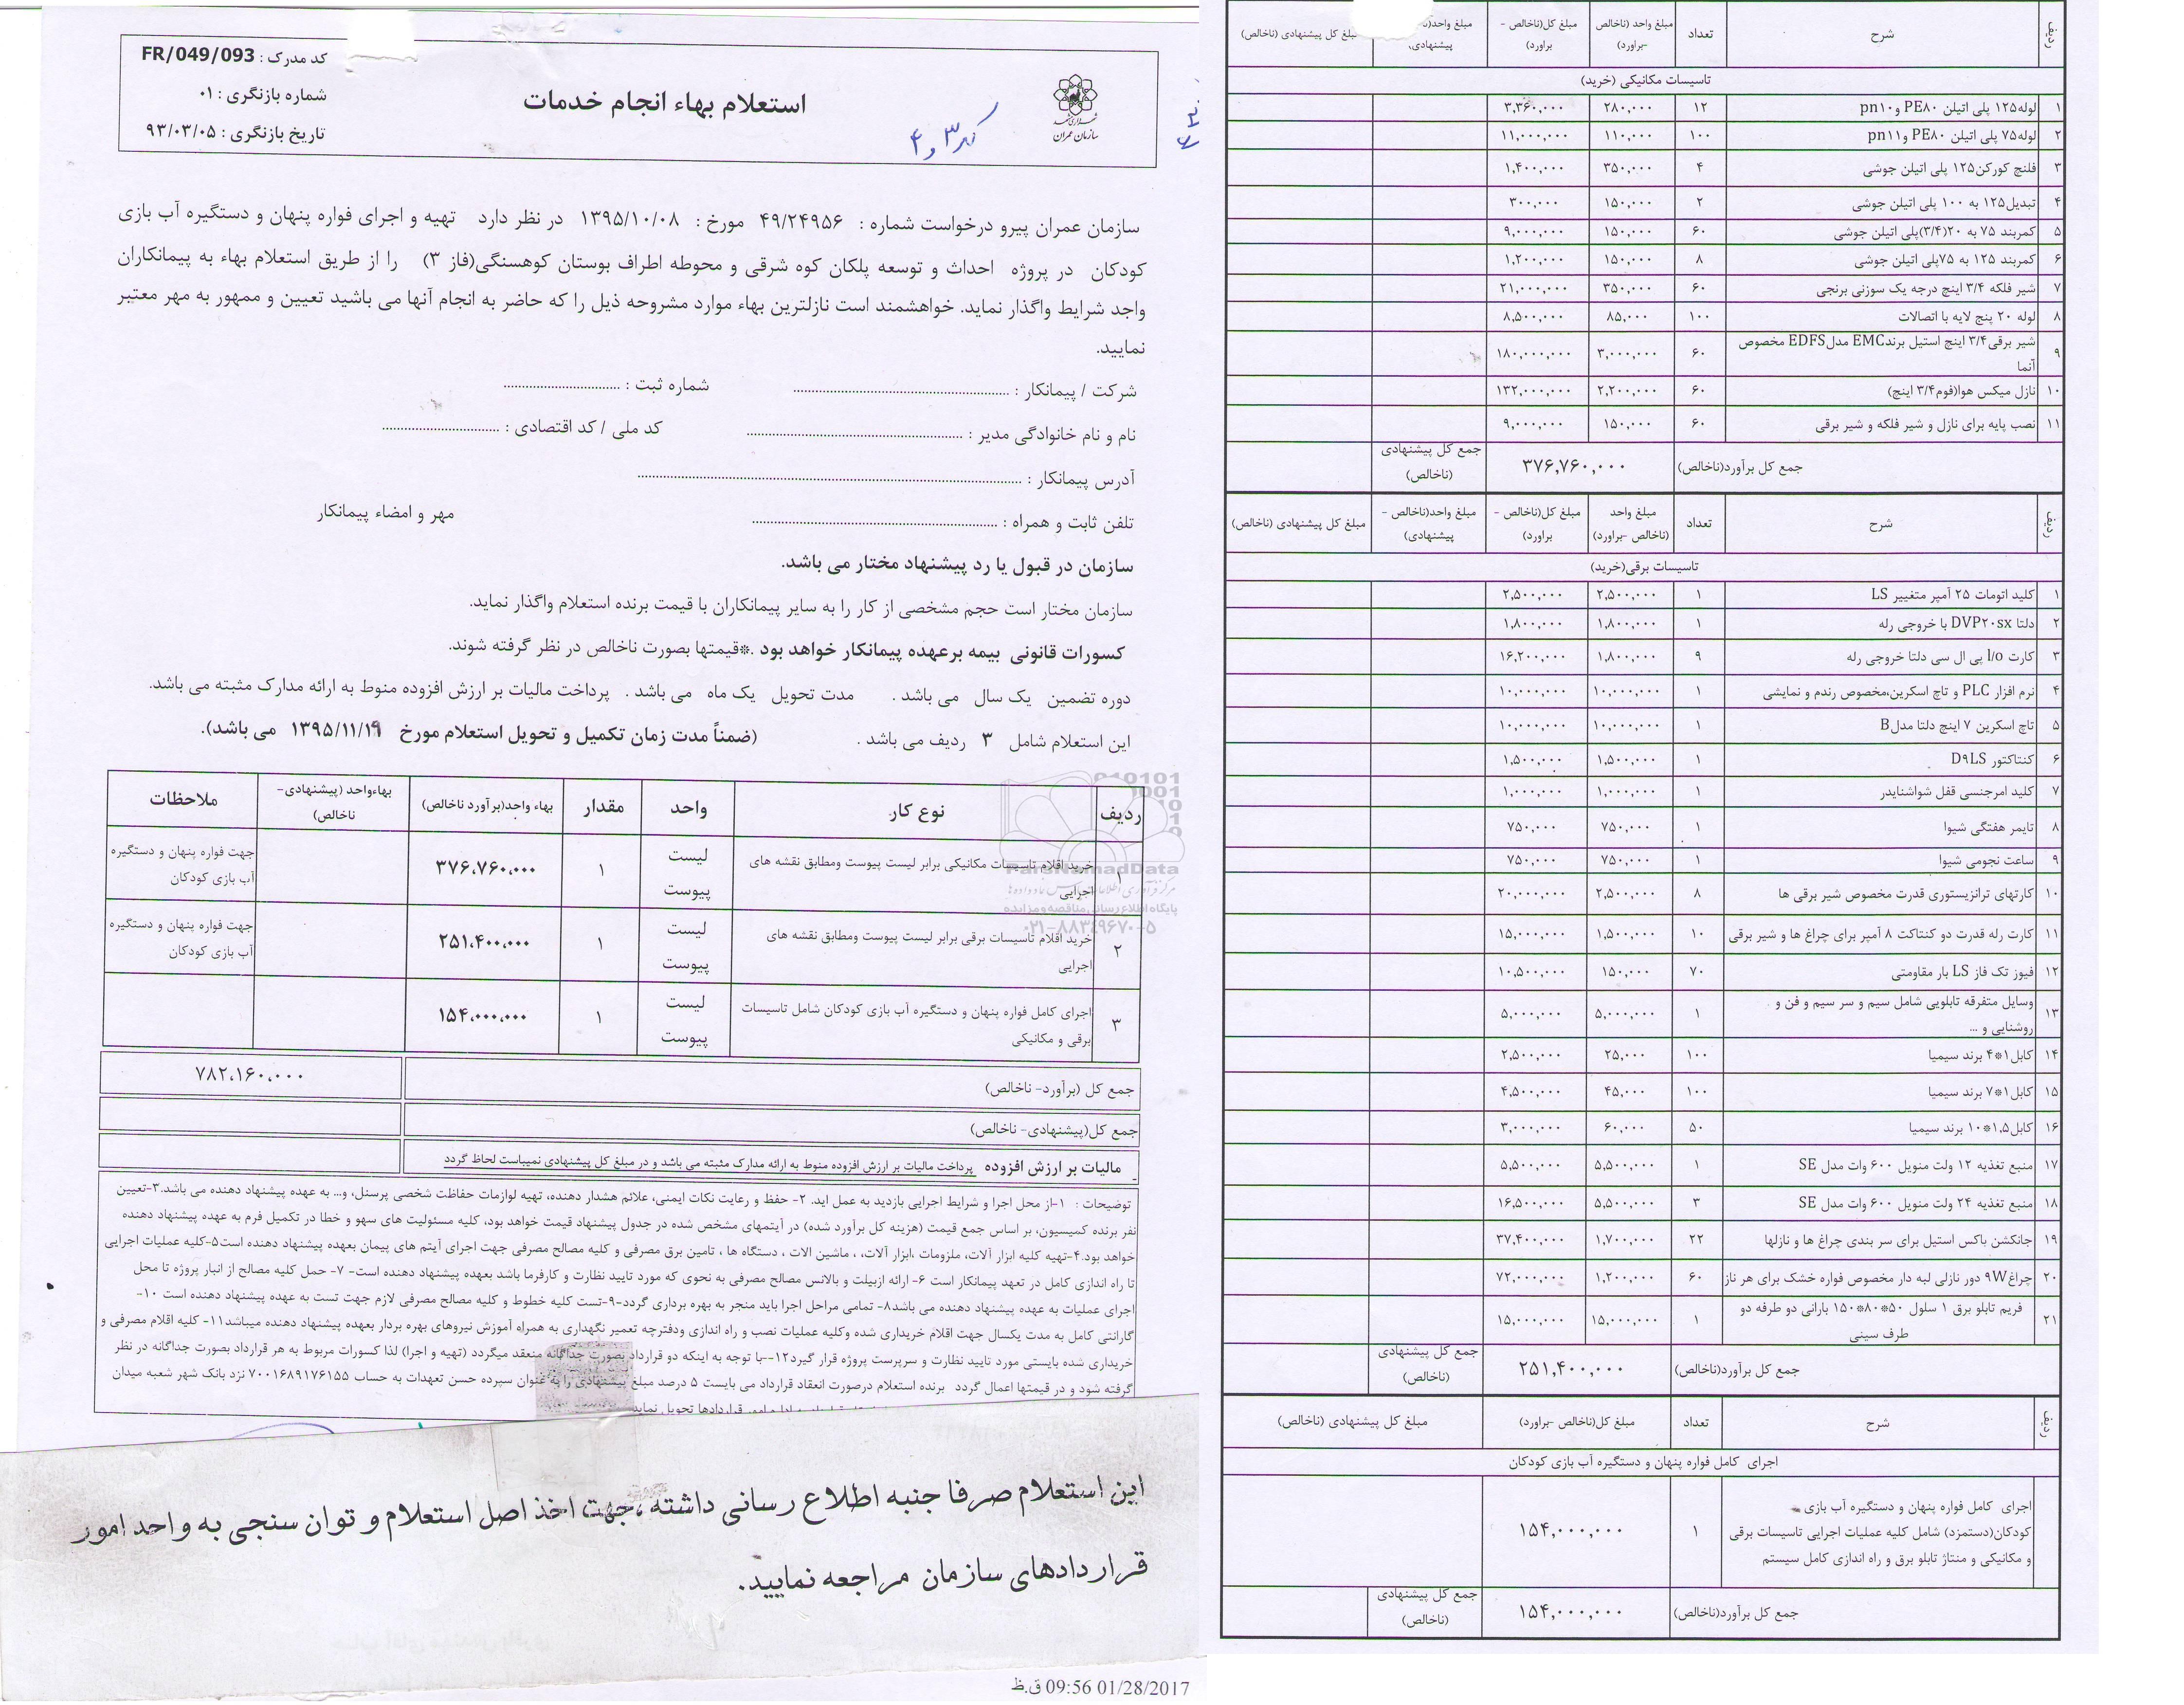 کد مدرک : FR/049/093
شماره بازنگری : ۰۱
تاریخ بازنگری : ۹۳/۰۳/۰۵
استعلام بهاء انجام خدمات
سازمان عمران
سازمان عمران پیرو درخواست شماره : ۴۹/۲۴۹۵۶ مورخ : ۱۳۹۵/۱۰/۰۸ در نظر دارد تهیه و اجرای فواره پنهان و دستگیره آب بازی
کودکان در پروژه احداث و توسعه پلکان کوه شرقی و محوطه اطراف بوستان کوهسنگی(فاز ۳) را از طریق استعلام بهاء به پیمانکاران
واجد شرایط واگذار نماید. خواهشمند است نازلترین بهاء موارد مشروحه ذیل را که حاضر به انجام آنها می باشید تعیین و ممهور به مهر معتبر
نمایید.
شرکت / پیمانکار : ........ شماره ثبت : ........
نام و نام خانوادگی مدیر : ........ کد ملی / کد اقتصادی : ........
آدرس پیمانکار : ........
تلفن ثابت و همراه : ........ مهر و امضاء پیمانکار
سازمان در قبول یا رد پیشنهاد مختار می باشد.
سازمان مختار است حجم مشخصی از کار را به سایر پیمانکاران با قیمت برنده استعلام واگذار نماید.
کسورات قانونی بیمه برعهده پیمانکار خواهد بود .*قیمتها بصورت ناخالص در نظر گرفته شوند.
دوره تضمین یک سال می باشد . مدت تحویل یک ماه می باشد . پرداخت مالیات بر ارزش افزوده منوط به ارائه مدارک مثبته می باشد.
این استعلام شامل ۳ ردیف می باشد . (ضمناً مدت زمان تکمیل و تحویل استعلام مورخ ۱۳۹۵/۱۱/۱۹ می باشد).
ردیف نوع کار واحد مقدار بهاء واحد(برآورد ناخالص) بهاءواحد (پیشنهادی- ناخالص) ملاحظات
۱ خرید اقلام تاسیسات مکانیکی برابر لیست پیوست ومطابق نقشه های اجرایی لیست پیوست ۱ ۳۷۶،۷۶۰،۰۰۰ جهت فواره پنهان و دستگیره آب بازی کودکان
۲ خرید اقلام تاسیسات برقی برابر لیست پیوست ومطابق نقشه های اجرایی لیست پیوست ۱ ۲۵۱،۴۰۰،۰۰۰ جهت فواره پنهان و دستگیره آب بازی کودکان
۳ اجرای کامل فواره پنهان و دستگیره آب بازی کودکان شامل تاسیسات برقی و مکانیکی لیست پیوست ۱ ۱۵۴،۰۰۰،۰۰۰
جمع کل (برآورد- ناخالص) ۷۸۲،۱۶۰،۰۰۰
جمع کل(پیشنهادی- ناخالص)
مالیات بر ارزش افزوده پرداخت مالیات بر ارزش افزوده منوط به ارائه مدارک مثبته می باشد و در مبلغ کل پیشنهادی نمیباست لحاظ گردد
توضیحات : ۱-از محل اجرا و شرایط اجرایی بازدید به عمل اید. ۲- حفظ و رعایت نکات ایمنی، علائم هشدار دهنده، تهیه لوازمات حفاظت شخصی پرسنل، و... به عهده پیشنهاد دهنده می باشد.۳-تعیین
نفر برنده کمیسیون، بر اساس جمع قیمت (هزینه کل برآورد شده) در آیتمهای مشخص شده در جدول پیشنهاد قیمت خواهد بود، کلیه مسئولیت های سهو و خطا در تکمیل فرم به عهده پیشنهاد دهنده
خواهد بود.۴-تهیه کلیه ابزار آلات، ملزومات ،ابزار آلات، ، ماشین الات ، دستگاه ها ، تامین برق مصرفی و کلیه مصالح مصرفی جهت اجرای آیتم های پیمان بعهده پیشنهاد دهنده است۵-کلیه عملیات اجرایی
تا راه اندازی کامل در تعهد پیمانکار است ۶- ارائه ازبیلت و بالانس مصالح مصرفی به نحوی که مورد تایید نظارت و کارفرما باشد بعهده پیشنهاد دهنده است- ۷- حمل کلیه مصالح از انبار پروژه تا محل
اجرای عملیات به عهده پیشنهاد دهنده می باشد۸- تمامی مراحل اجرا باید منجر به بهره برداری گردد-۹-تست کلیه خطوط و کلیه مصالح مصرفی لازم جهت تست به عهده پیشنهاد دهنده است ۱۰-
گارانتی کامل به مدت یکسال جهت اقلام خریداری شده وکلیه عملیات نصب و راه اندازی ودفترچه تعمیر نگهداری به همراه آموزش نیروهای بهره بردار بعهده پیشنهاد دهنده میباشد۱۱- کلیه اقلام مصرفی و
خریداری شده بایستی مورد تایید نظارت و سرپرست پروژه قرار گیرد۱۲--با توجه به اینکه دو قرارداد بصورت جداگانه منعقد میگردد (تهیه و اجرا) لذا کسورات مربوط به هر قرارداد بصورت جداگانه در نظر
گرفته شود و در قیمتها اعمال گردد برنده استعلام درصورت انعقاد قرارداد می بایست ۵ درصد مبلغ پیشنهادی را به عنوان سپرده حسن تعهدات به حساب ۷۰۰۱۶۸۹۱۷۶۱۵۵ نزد بانک شهر شعبه میدان
قراردادها تحویل نماید
این استعلام صرفا جنبه اطلاع رسانی داشته ،جهت اخذ اصل استعلام و توان سنجی به واحد امور
قراردادهای سازمان مراجعه نمایید.
09:56 01/28/2017 ق.ظ
ParsNamadData
پایگاه اطلاع رسانی مناقصه و مزایده
۰۲۱-۸۸۳۴۹۶۷۰-۵
ردیف شرح تعداد مبلغ واحد (ناخالص -براورد) مبلغ کل(ناخالص - براورد) مبلغ واحد( پیشنهادی، مبلغ کل پیشنهادی (ناخالص)
تاسیسات مکانیکی (خرید)
۱ لوله۱۲۵ پلی اتیلن PE۸۰ و pn۱۰ ۱۲ ۲۸۰,۰۰۰ ۳,۳۶۰,۰۰۰
۲ لوله۷۵ پلی اتیلن PE۸۰ و pn۱۱ ۱۰۰ ۱۱۰,۰۰۰ ۱۱,۰۰۰,۰۰۰
۳ فلنچ کورکن۱۲۵ پلی اتیلن جوشی ۴ ۳۵۰,۰۰۰ ۱,۴۰۰,۰۰۰
۴ تبدیل۱۲۵ به ۱۰۰ پلی اتیلن جوشی ۲ ۱۵۰,۰۰۰ ۳۰۰,۰۰۰
۵ کمربند ۷۵ به ۲۰(۳/۴)پلی اتیلن جوشی ۶۰ ۱۵۰,۰۰۰ ۹,۰۰۰,۰۰۰
۶ کمربند ۱۲۵ به ۷۵پلی اتیلن جوشی ۸ ۱۵۰,۰۰۰ ۱,۲۰۰,۰۰۰
۷ شیر فلکه ۳/۴ اینچ درجه یک سوزنی برنجی ۶۰ ۳۵۰,۰۰۰ ۲۱,۰۰۰,۰۰۰
۸ لوله ۲۰ پنج لایه با اتصالات ۱۰۰ ۸۵,۰۰۰ ۸,۵۰۰,۰۰۰
۹ شیر برقی۳/۴ اینچ استیل برندEMC مدلEDFS مخصوص آبنما ۶۰ ۳,۰۰۰,۰۰۰ ۱۸۰,۰۰۰,۰۰۰
۱۰ نازل میکس هوا(فوم۳/۴ اینچ) ۶۰ ۲,۲۰۰,۰۰۰ ۱۳۲,۰۰۰,۰۰۰
۱۱ نصب پایه برای نازل و شیر فلکه و شیر برقی ۶۰ ۱۵۰,۰۰۰ ۹,۰۰۰,۰۰۰
جمع کل برآورد(ناخالص) ۳۷۶,۷۶۰,۰۰۰ جمع کل پیشنهادی (ناخالص)
ردیف شرح تعداد مبلغ واحد (ناخالص -براورد) مبلغ کل(ناخالص - براورد) مبلغ واحد(ناخالص - پیشنهادی) مبلغ کل پیشنهادی (ناخالص)
تاسیسات برقی(خرید)
۱ کلید اتومات ۲۵ آمپر متغییر LS ۱ ۲,۵۰۰,۰۰۰ ۲,۵۰۰,۰۰۰
۲ دلتا DVP۲۰sx با خروجی رله ۱ ۱,۸۰۰,۰۰۰ ۱,۸۰۰,۰۰۰
۳ کارت I/o پی ال سی دلتا خروجی رله ۹ ۱,۸۰۰,۰۰۰ ۱۶,۲۰۰,۰۰۰
۴ نرم افزار PLC و تاچ اسکرین،مخصوص رندم و نمایشی ۱ ۱۰,۰۰۰,۰۰۰ ۱۰,۰۰۰,۰۰۰
۵ تاچ اسکرین ۷ اینچ دلتا مدلB ۱ ۱۰,۰۰۰,۰۰۰ ۱۰,۰۰۰,۰۰۰
۶ کنتاکتور D۹LS ۱ ۱,۵۰۰,۰۰۰ ۱,۵۰۰,۰۰۰
۷ کلید امرجنسی قفل شواشنایدر ۱ ۱,۰۰۰,۰۰۰ ۱,۰۰۰,۰۰۰
۸ تایمر هفتگی شیوا ۱ ۷۵۰,۰۰۰ ۷۵۰,۰۰۰
۹ ساعت نجومی شیوا ۱ ۷۵۰,۰۰۰ ۷۵۰,۰۰۰
۱۰ کارتهای ترانزیستوری قدرت مخصوص شیر برقی ها ۸ ۲,۵۰۰,۰۰۰ ۲۰,۰۰۰,۰۰۰
۱۱ کارت رله قدرت دو کنتاکت ۸ آمپر برای چراغ ها و شیر برقی ۱۰ ۱,۵۰۰,۰۰۰ ۱۵,۰۰۰,۰۰۰
۱۲ فیوز تک فاز LS بار مقاومتی ۷۰ ۱۵۰,۰۰۰ ۱۰,۵۰۰,۰۰۰
۱۳ وسایل متفرقه تابلویی شامل سیم و سر سیم و فن و روشنایی و ... ۱ ۵,۰۰۰,۰۰۰ ۵,۰۰۰,۰۰۰
۱۴ کابل۱*۴ برند سیمیا ۱۰۰ ۲۵,۰۰۰ ۲,۵۰۰,۰۰۰
۱۵ کابل۱*۷ برند سیمیا ۱۰۰ ۴۵,۰۰۰ ۴,۵۰۰,۰۰۰
۱۶ کابل۱,۵*۱۰ برند سیمیا ۵۰ ۶۰,۰۰۰ ۳,۰۰۰,۰۰۰
۱۷ منبع تغذیه ۱۲ ولت منویل ۶۰۰ وات مدل SE ۱ ۵,۵۰۰,۰۰۰ ۵,۵۰۰,۰۰۰
۱۸ منبع تغذیه ۲۴ ولت منویل ۶۰۰ وات مدل SE ۳ ۵,۵۰۰,۰۰۰ ۱۶,۵۰۰,۰۰۰
۱۹ جانکشن باکس استیل برای سر بندی چراغ ها و نازلها ۲۲ ۱,۷۰۰,۰۰۰ ۳۷,۴۰۰,۰۰۰
۲۰ چراغ۹W دور نازلی لبه دار مخصوص فواره خشک برای هر ناز ۶۰ ۱,۲۰۰,۰۰۰ ۷۲,۰۰۰,۰۰۰
۲۱ فریم تابلو برق ۱ سلول ۵۰*۸۰*۱۵۰ بارانی دو طرفه دو طرف سینی ۱ ۱۵,۰۰۰,۰۰۰ ۱۵,۰۰۰,۰۰۰
جمع کل برآورد(ناخالص) ۲۵۱,۴۰۰,۰۰۰ جمع کل پیشنهادی (ناخالص)
ردیف شرح تعداد مبلغ کل(ناخالص -براورد) مبلغ کل پیشنهادی (ناخالص)
اجرای کامل فواره پنهان و دستگیره آب بازی کودکان
اجرای کامل فواره پنهان و دستگیره آب بازی
کودکان(دستمزد) شامل کلیه عملیات اجرایی تاسیسات برقی ۱ ۱۵۴,۰۰۰,۰۰۰
و مکانیکی و منتاژ تابلو برق و راه اندازی کامل سیستم
جمع کل برآورد(ناخالص) ۱۵۴,۰۰۰,۰۰۰ جمع کل پیشنهادی (ناخالص)